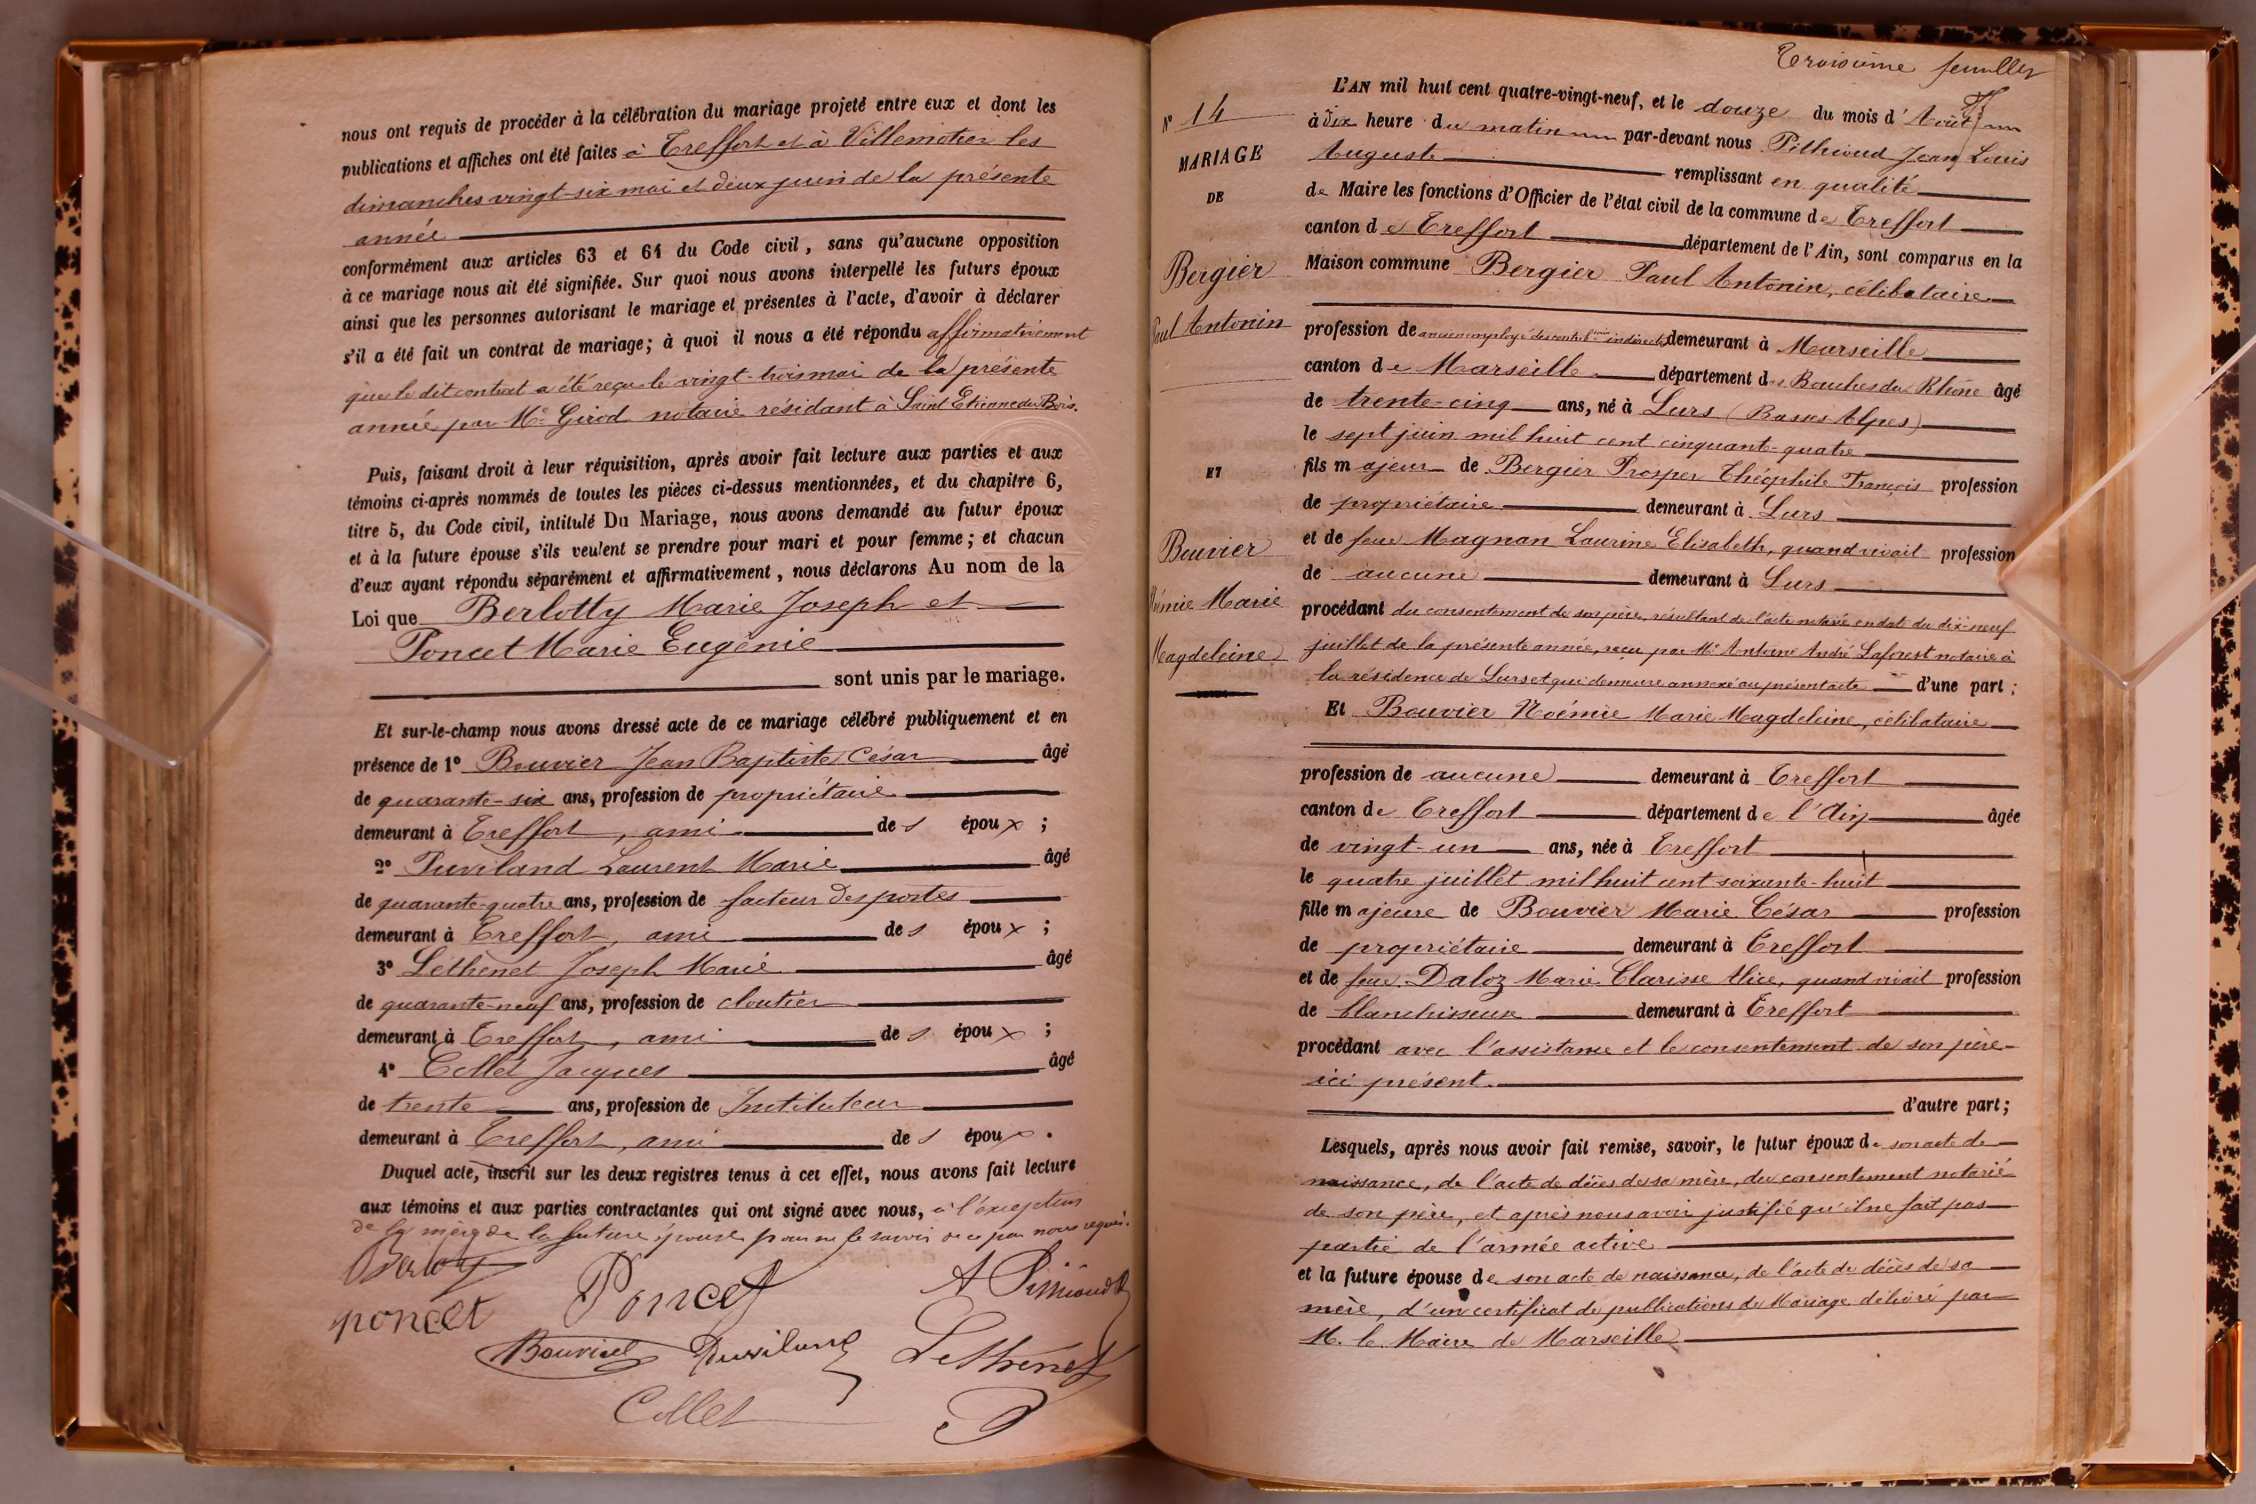 nous ont requis de procéder à la célébration du mariage projeté entre eux et dont les
publications et affiches ont été faites à Treffort et à Villemotier les
dimanches vingt-six mai et deux juin de la présente
année
conformément aux articles 63 et 64 du Code civil, sans qu'aucune opposition
à ce mariage nous ait été signifiée. Sur quoi nous avons interpellé les futurs époux
ainsi que les personnes autorisant le mariage et présentes à l'acte, d'avoir à déclarer
s'il a été fait un contrat de mariage; à quoi il nous a été répondu affirmativement
que le dit contrat a été reçu le vingt-trois mai de la présente
année par Me Girod notaire résidant à Saint Etienne du Bois.
Puis, faisant droit à leur réquisition, après avoir fait lecture aux parties et aux
témoins ci-après nommés de toutes les pièces ci-dessus mentionnées, et du chapitre 6,
titre 5, du Code civil, intitulé Du Mariage, nous avons demandé au futur époux
et à la future épouse s'ils veulent se prendre pour mari et pour femme; et chacun
d'eux ayant répondu séparément et affirmativement, nous déclarons Au nom de la
Loi que Berlotty Marie Joseph et
Poncet Marie Eugénie
sont unis par le mariage.
Et sur-le-champ nous avons dressé acte de ce mariage célébré publiquement et en
présence de 1º Bouvier Jean Baptiste César âgé
de quarante-six ans, profession de propriétaire
demeurant à Treffort, ami des époux;
2º Puvilland Laurent Marie âgé
de quarante-quatre ans, profession de facteur des postes
demeurant à Treffort, ami des époux;
3º Léthenet Joseph Marie âgé
de quarante-neuf ans, profession de cloutier
demeurant à Treffort, ami des époux;
4º Collet Jacques âgé
de trente ans, profession de Instituteur
demeurant à Treffort, ami des époux.
Duquel acte, inscrit sur les deux registres tenus à cet effet, nous avons fait lecture
aux témoins et aux parties contractantes qui ont signé avec nous, à l'exception
de la mère de la future épouse pour ne le savoir de ce par nous requis.
Berlotty
poncet Poncet A Pithioud
Bouvier Puvilland Lethenet
Collet
Troisième feuillet
Nº 14
MARIAGE
DE
Bergier
Paul Antonin
ET
Bouvier
Noémie Marie
Magdeleine
L'AN mil huit cent quatre-vingt-neuf, et le douze du mois d'Août
à dix heure du matin par-devant nous Pithioud Jean Louis
Auguste remplissant en qualité
de Maire les fonctions d'Officier de l'état civil de la commune de Treffort
canton de Treffort département de l'Ain, sont comparus en la
Maison commune Bergier Paul Antonin, célibataire
profession de ancien employé des contributions indirectes demeurant à Marseille
canton de Marseille département des Bouches du Rhône âgé
de trente-cinq ans, né à Lurs (Basses Alpes)
le sept juin mil huit cent cinquante-quatre
fils majeur de Bergier Prosper Théophile François profession
de propriétaire demeurant à Lurs
et de feue Magnan Laurine Elisabeth, quand vivait profession
de aucune demeurant à Lurs
procédant du consentement de son père, résultant de l'acte notarié en date du dix-neuf
juillet de la présente année, reçu par Me Antoine André Laforest notaire à
la résidence de Lurs et qui demeure annexé au présent acte d'une part;
Et Bouvier Noémie Marie Magdeleine, célibataire
profession de aucune demeurant à Treffort
canton de Treffort département de l'Ain âgée
de vingt-un ans, née à Treffort
le quatre juillet mil huit cent soixante-huit
fille majeure de Bouvier Marie César profession
de propriétaire demeurant à Treffort
et de feue Daloz Marie Clarisse Alice, quand vivait profession
de blanchisseuse demeurant à Treffort
procédant avec l'assistance et le consentement de son père
ici présent.
d'autre part;
Lesquels, après nous avoir fait remise, savoir, le futur époux de son acte de
naissance, de l'acte de décès de sa mère, du consentement notarié
de son père, et après nous avoir justifié qu'il ne fait pas
partie de l'armée active
et la future épouse de son acte de naissance, de l'acte de décès de sa
mère, d'un certificat de publications de Mariage délivré par
M. le Maire de Marseille